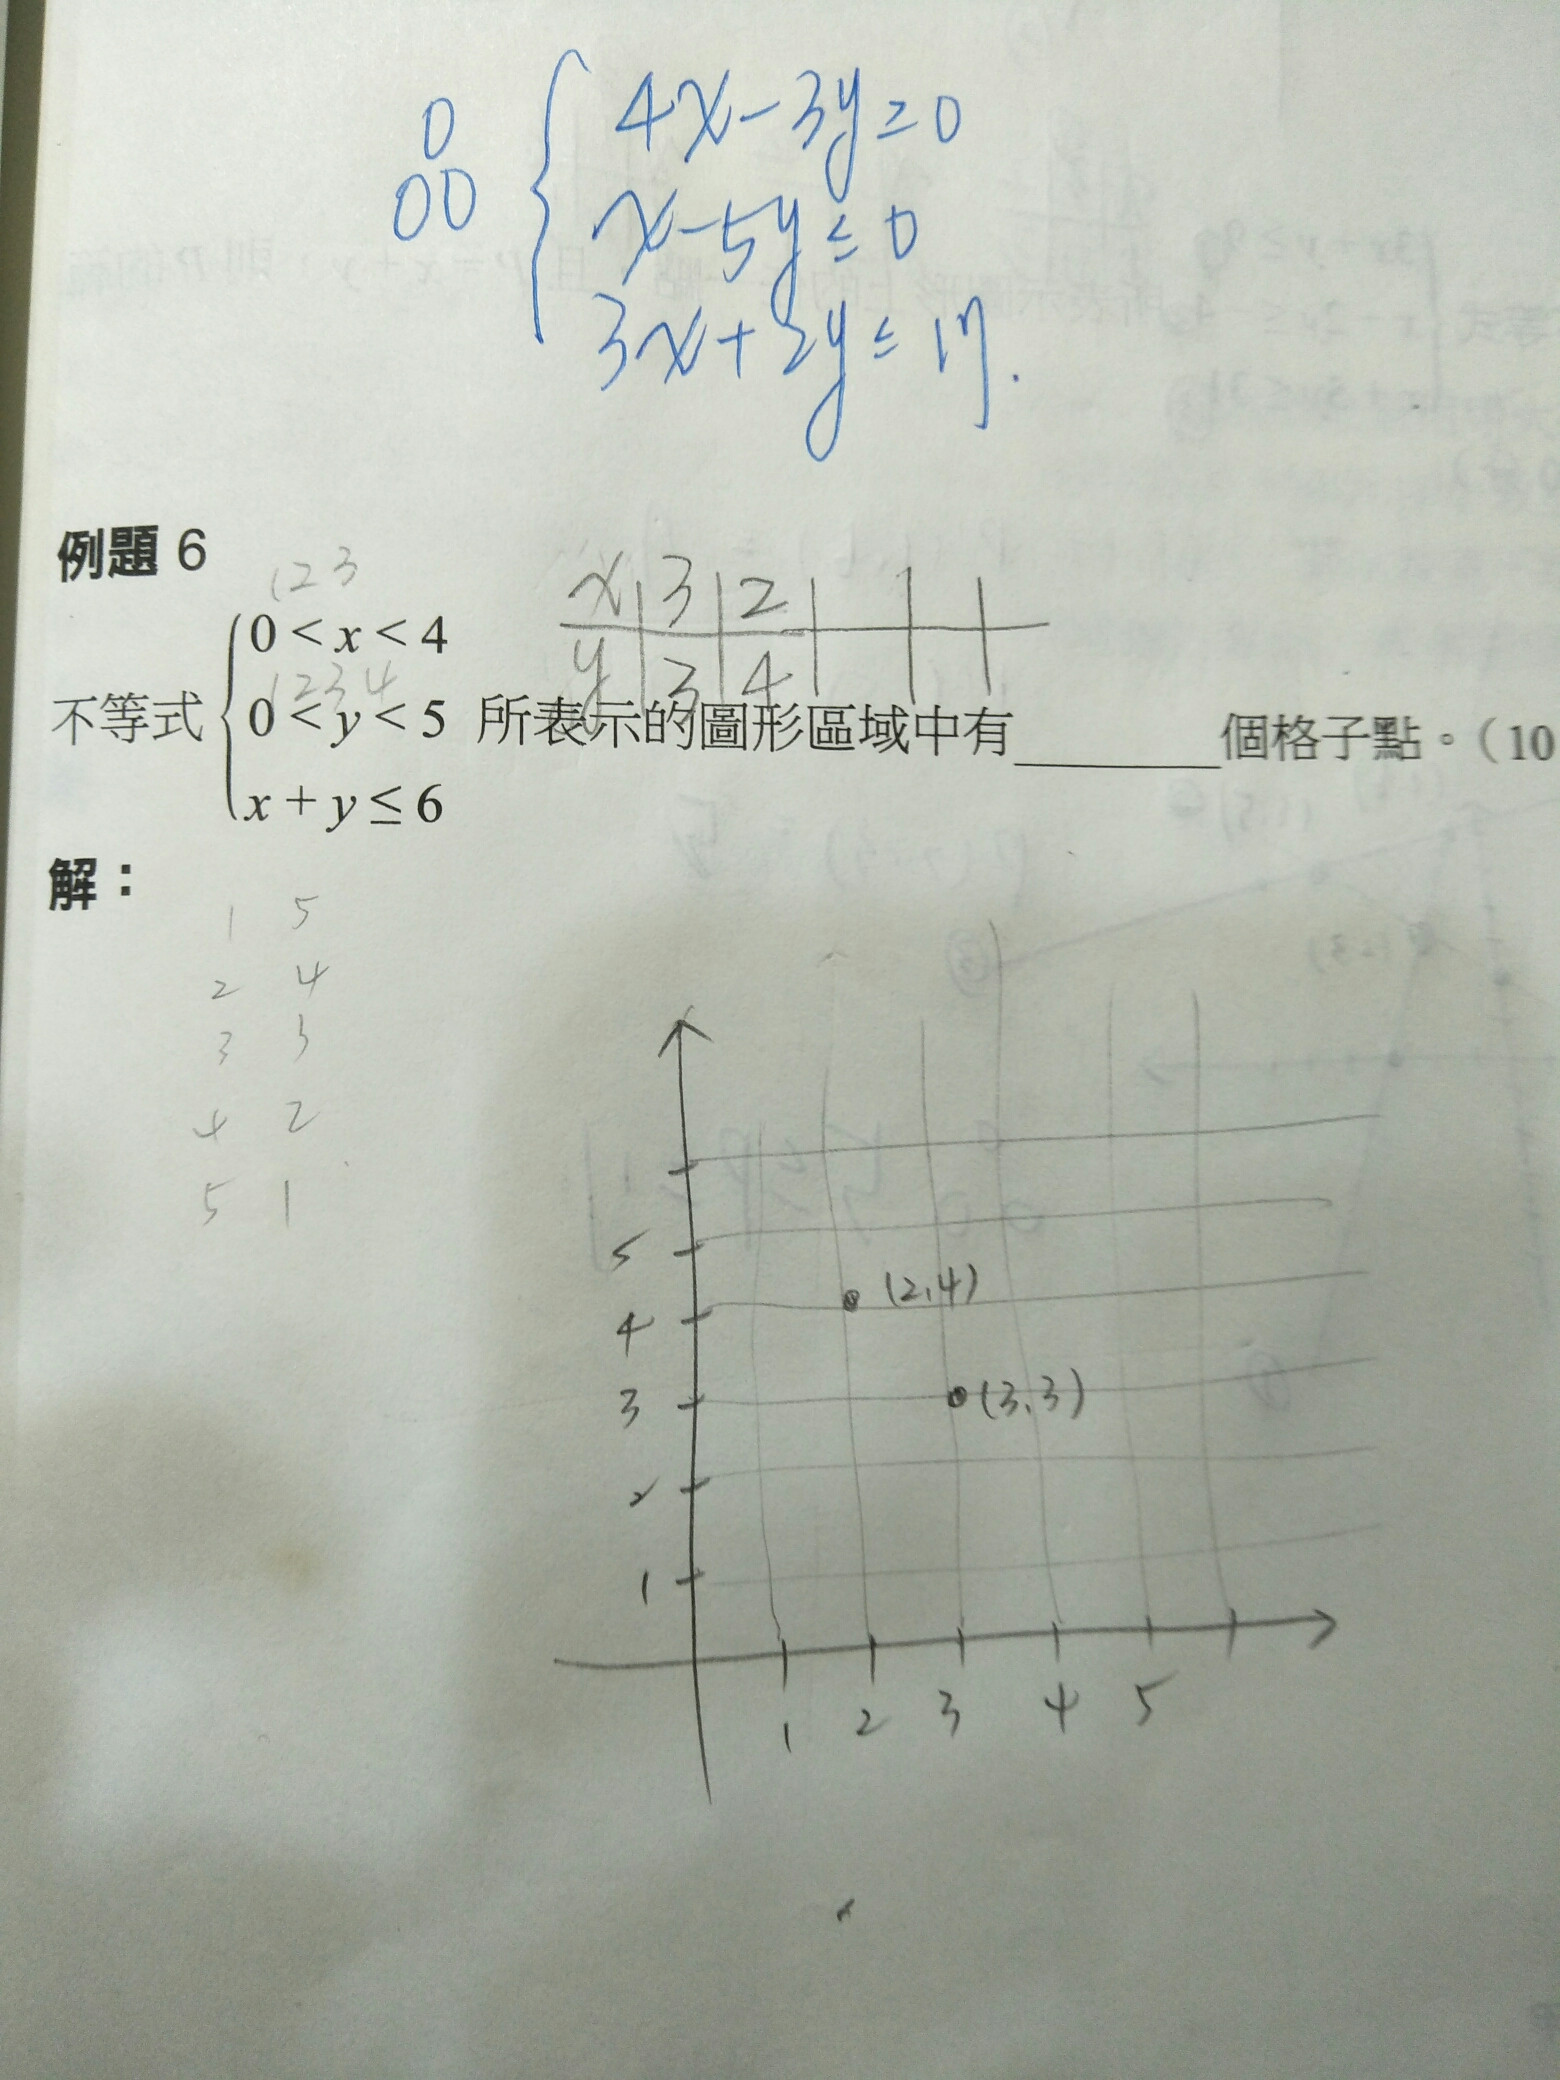 4x-3y≥0
x-5y≤0
3x+2y≤17.
0
00
例題 6
1 2 3
0 < x < 4
1 2 3 4
不等式 0 < y < 5 所表示的圖形區域中有______個格子點。(10
x + y ≤ 6
x 3 2
y 3 4
解：
1 5
2 4
3 3
4 2
5 1
5
4 (2,4)
3 (3,3)
2
1
1 2 3 4 5